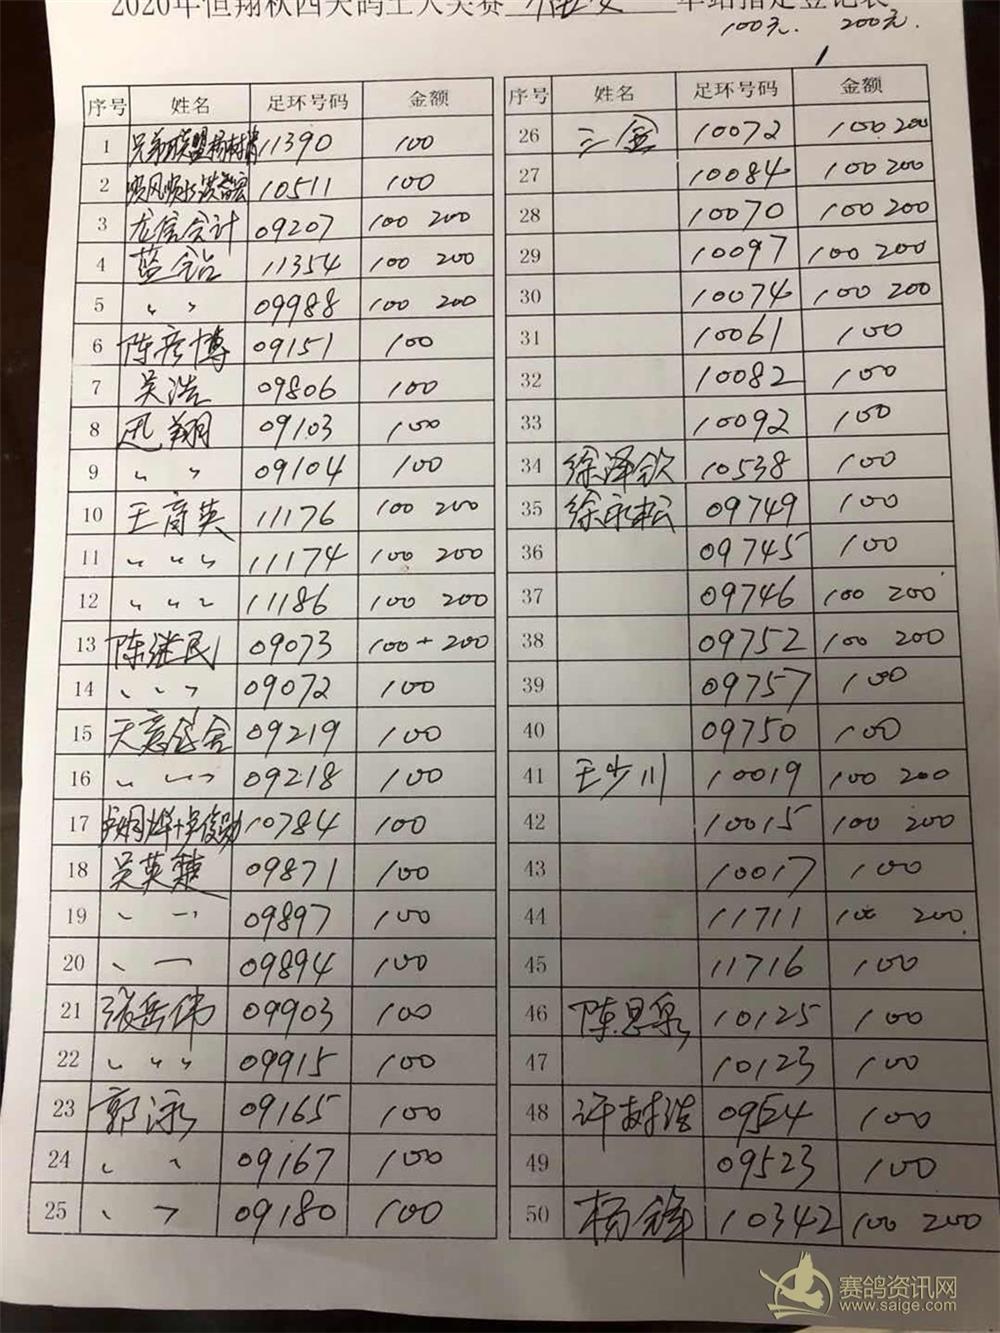 2020年恒翔秋四关鸽王大奖赛 单站指定登记表
100元. 200元.
序号 姓名 足环号码 金额
1 11390 100
2 10511 100
3 龙信会计 09207 100 200
4 蓝鸽 11354 100 200
5 〃 09988 100 200
6 陈彦博 09151 100
7 吴浩 09806 100
8 迅翔 09103 100
9 〃 09104 100
10 王育英 11176 100 200
11 〃 11174 100 200
12 〃 11186 100 200
13 陈继民 09073 100+200
14 〃 09072 100
15 天意鸽舍 09219 100
16 〃 09218 100
17 10784 100
18 吴英楚 09871 100
19 〃 09897 100
20 〃 09894 100
21 张岳伟 09903 100
22 〃 09915 100
23 郭泳 09165 100
24 〃 09167 100
25 〃 09180 100
序号 姓名 足环号码 金额
26 三金 10072 100 200
27 10084 100 200
28 10070 100 200
29 10097 100 200
30 10074 100 200
31 10061 100
32 10082 100
33 10092 100
34 徐泽钦 10538 100
35 徐永松 09749 100
36 09745 100
37 09746 100 200
38 09752 100 200
39 09757 100
40 09750 100
41 王少川 10019 100 200
42 10015 100 200
43 10017 100
44 11711 100 200
45 11716 100
46 陈思泉 10125 100
47 10123 100
48 许树浩 09524 100
49 09523 100
50 杨锋 10342 100 200
赛鸽资讯网
www.saige.com